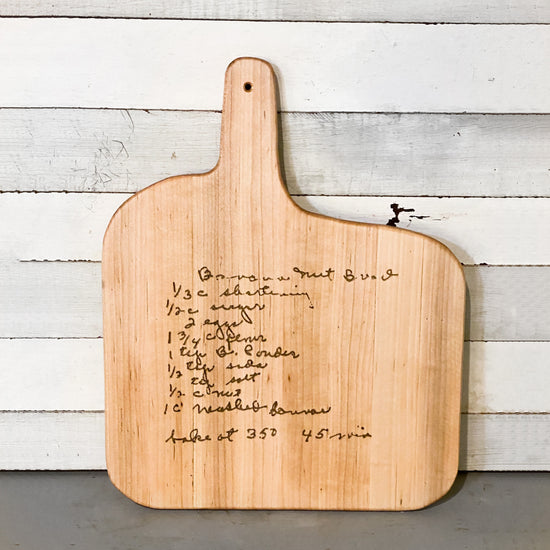 Banana Nut Bread
1/3 c shortening
1/2 c sugar
2 eggs
1 3/4 c flour
1 tsp B. Powder
1/2 tsp soda
1/2 tsp salt
1/2 c nut
1 c mashed banana
bake at 350 45 min